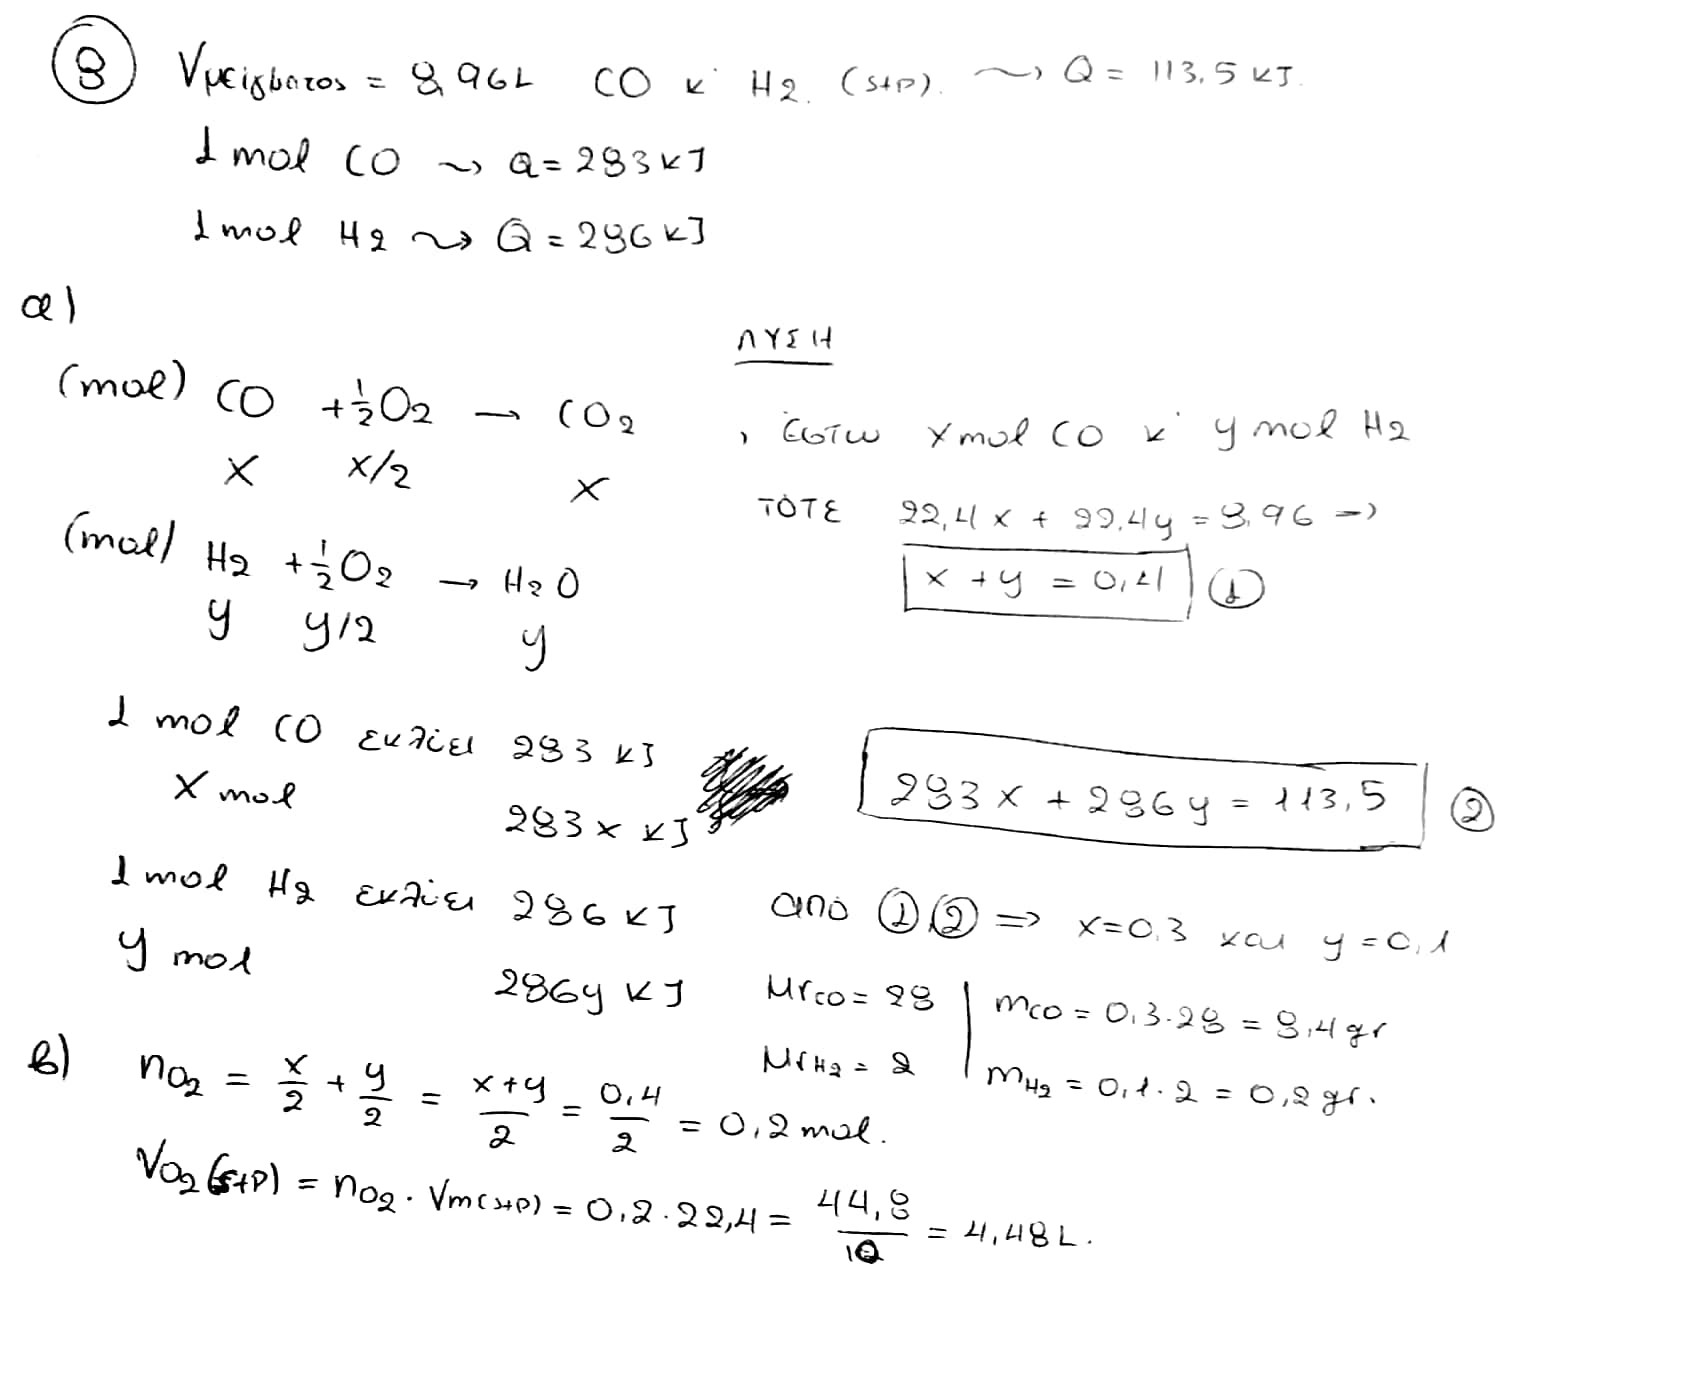 8 Vμείγματος = 8,96L CO κ' H2. (stp). ⇝ Q = 113,5 kJ.
1 mol CO ⇝ Q = 283 kJ
1 mol H2 ⇝ Q = 286 kJ
α)
ΛΥΣΗ
(mol) CO + 1/2 O2 → CO2 , έστω x mol CO κ' y mol H2
x x/2 x
ΤΟΤΕ 22,4x + 22,4y = 8,96 =>
(mol) H2 + 1/2 O2 → H2O
x + y = 0,4 ①
y y/2 y
1 mol CO εκλύει 283 kJ
x mol 283x kJ
283x + 286y = 113,5 ②
1 mol H2 εκλύει 286 kJ
y mol 286y kJ
από ① ② => x=0,3 και y=0,1
MrCO = 28 mCO = 0,3·28 = 8,4 gr
MrH2 = 2 mH2 = 0,1·2 = 0,2 gr.
β) nO2 = x/2 + y/2 = x+y/2 = 0,4/2 = 0,2 mol.
VO2 (stp) = nO2 · Vm(stp) = 0,2·22,4 = 44,8/10 = 4,48 L.